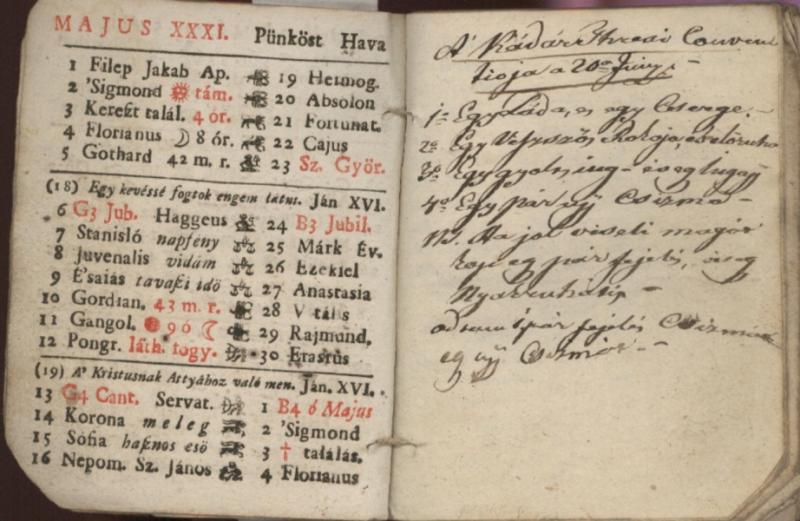 MAJUS XXXI. Pünköst Hava
1 Filep Jakab Ap. 19 Hermog.
2 'Sigmond tám. 20 Absolon
3 Kereſzt talál. 4 ór. 21 Fortunat.
4 Florianus ☽ 8 ór. 22 Cajus
5 Gothard 42 m. r. 23 Sz. Györ.
(18) Egy kevéssé fogtok engem látni. Ján XVI.
6 G3 Jub. Haggeus 24 B3 Jubil.
7 Stanisló napfény 25 Márk Év.
8 Juvenalis vidám 26 Ezekiel
9 É'saiás tavaſzi idö 27 Anastasia
10 Gordian. 43 m. r. 28 Vitális
11 Gangol. 9 ó ☾ 29 Rajmond.
12 Pongr. láth. fogy. 30 Erastus
(19) A' Kristusnak Attyához való men. Ján. XVI.
13 G4 Cant. Servat. 1 B4 ó Majus
14 Korona meleg 2 'Sigmond
15 Sófia haſznos esö 3 † találás.
16 Nepom. Sz. János 4 Florianus
A' Kádár Conven
tioja a 20a Juny.
1o Egy Láda, és egy Cserge.
2o Egy
3o Egy
4o Egy pár uj Csizma
NB. Ha jol viseli magát
egy pár fejelés,
fejelés Csizma
egy uj